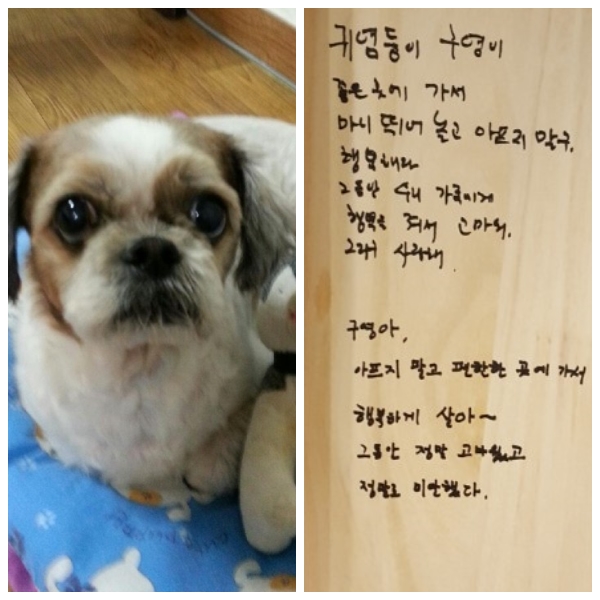 귀염둥이 구영이
좋은 곳에 가서
마니 뛰어 놀고 아프지 말구,
행복해라
그동안 우리 가족에게
행복을 줘서 고마워.
그리구 사랑해.
구영아,
아프지 말고 편안한 곳에 가서
행복하게 살아~
그동안 정말 고마웠고
정말로 미안했다.